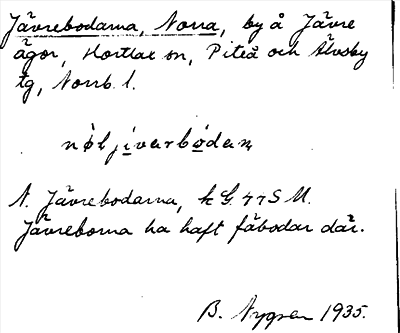 Jävrebodarna, Norra, by å Jävre
ägor, Hortlax sn, Piteå och Älvsby
tg, Norrb. l.
nø̀l jìvarbo̱dan̥
N. Jävrebodarna, k G. 77 S M.
Jävreborna ha haft fäbodar där.
B. Nygren 1935.